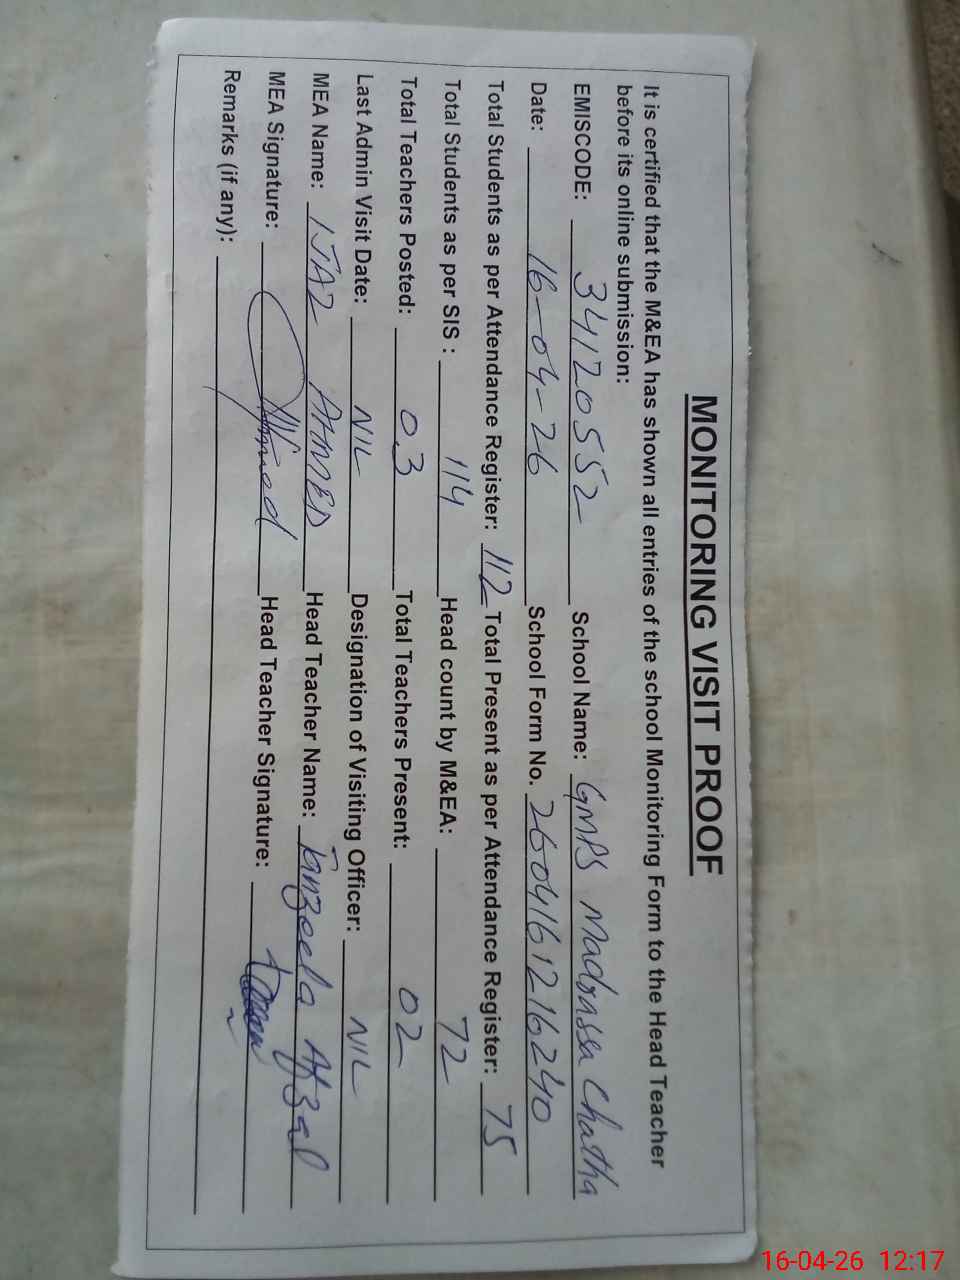 MONITORING VISIT PROOF
It is certified that the M&EA has shown all entries of the school Monitoring Form to the Head Teacher
before its online submission:
EMISCODE: 34120552 School Name: GMPS Madrassa Chatha
Date: 16-04-26 School Form No. 2604161216240
Total Students as per Attendance Register: 112 Total Present as per Attendance Register: 75
Total Students as per SIS : 114 Head count by M&EA: 72
Total Teachers Posted: 03 Total Teachers Present: 02
Last Admin Visit Date: NIL Designation of Visiting Officer: NIL
MEA Name: IJAZ AHMED Head Teacher Name: Tanzeela Afzal
MEA Signature: Ahmed Head Teacher Signature:
Remarks (if any):
16-04-26 12:17